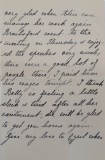 very glad when Glen can
manage her work again
Brailsford went to the
meeting on Thursday & enjoy
ed the speeches very much
there were a good lot of
people there, I paid him
his wages tonight. I think
Betty is feeling a little
tired after all her
excitement, she will be glad
to get you home again
Give my love to Cyril when